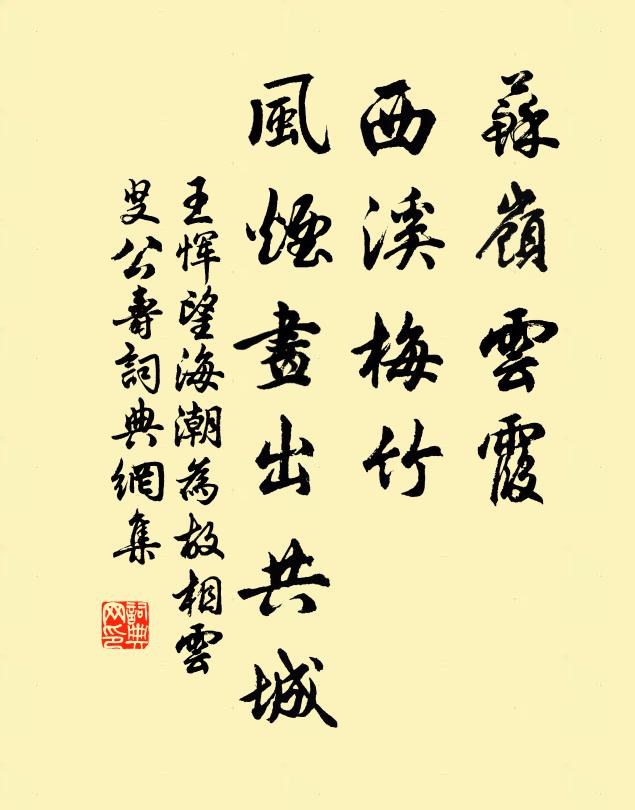 蘇嶺雲霞
西溪梅竹
風煙畫出共城
王惲望海潮為故相雲
叟公壽詞典網集
詞典網印